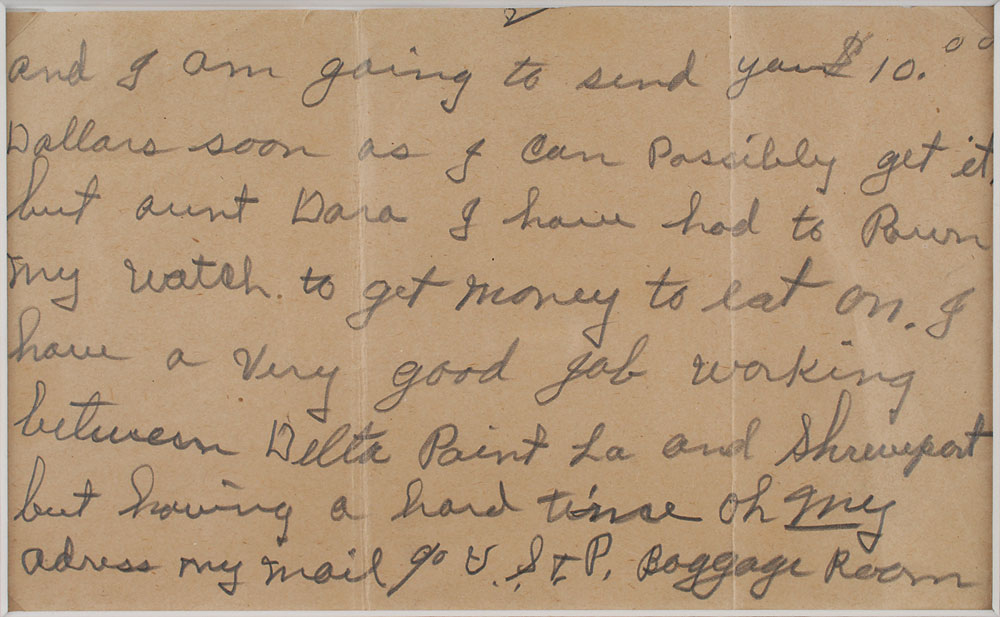 and I am going to send you $10.00
Dollars soon as I can Possibly get it,
but aunt Dora I have had to Pawn
my watch. to get money to eat on. I
have a very good job working
between Delta Point La and Shreveport
but having a hard time oh my
adress my mail c/o V. S. & P. Baggage Room